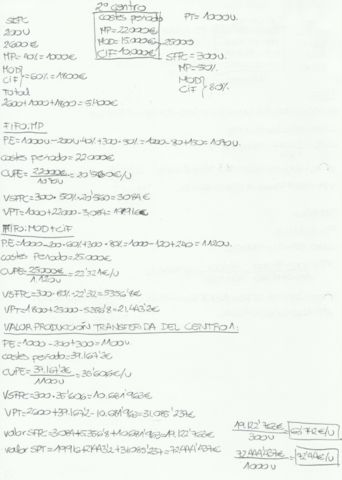 2º centro
SEPC
200u
2600€
MP=40%=1000€
MOD
CIF }=60%=1800€
Total
2600+1000+1800=5400€
costes periodo
MP=22000€
MOD=15.000€
CIF=10.000€
25000
PT=1000u.
SFPC=300u.
MP=50%.
MOD
CIF } 80%.
FIFO.MP
PE=1000u-200u·40%+300·50%=1000-80+150=1070u.
costes periodo=22000€
CUPE=22000€/1070u=20'560€/u
VSFPC=300·50%·20'560=3084€
VPT=1000+22000-3084=19916€
FIFO.MOD+CIF
P.E=1000-200·60%+300·80%=1000-120+240=1120u.
costes Periodo=25.000€
CUPE=25000€/1.120u=22'321€/u
VSFPC=300·80%·22'32=5356'8€
VPT=1800+25000-5356'8=21.443'2€
VALOR PRODUCCIÓN TRANSFERIDA DEL CENTRO 1:
PE=1000-200+300=1100u.
costes periodo=39.167'2€
CUPE=39.167'2€/1100u=35'606€/u
VSFPC=300·35'606=10.681'963€
VPT=2600+39.167'2-10.681'963=31.085'237€
valor SFPC=3084+5356'8+10.681'963=19.122'763€
19.122'763€/300u=63'742€/u
valor SPT=19916+21443'2+31085'237=72.444'437€
72.444'437€/1000u=72'444€/u